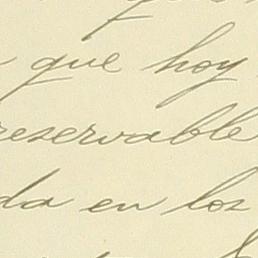 que hoy
reservable
da en los